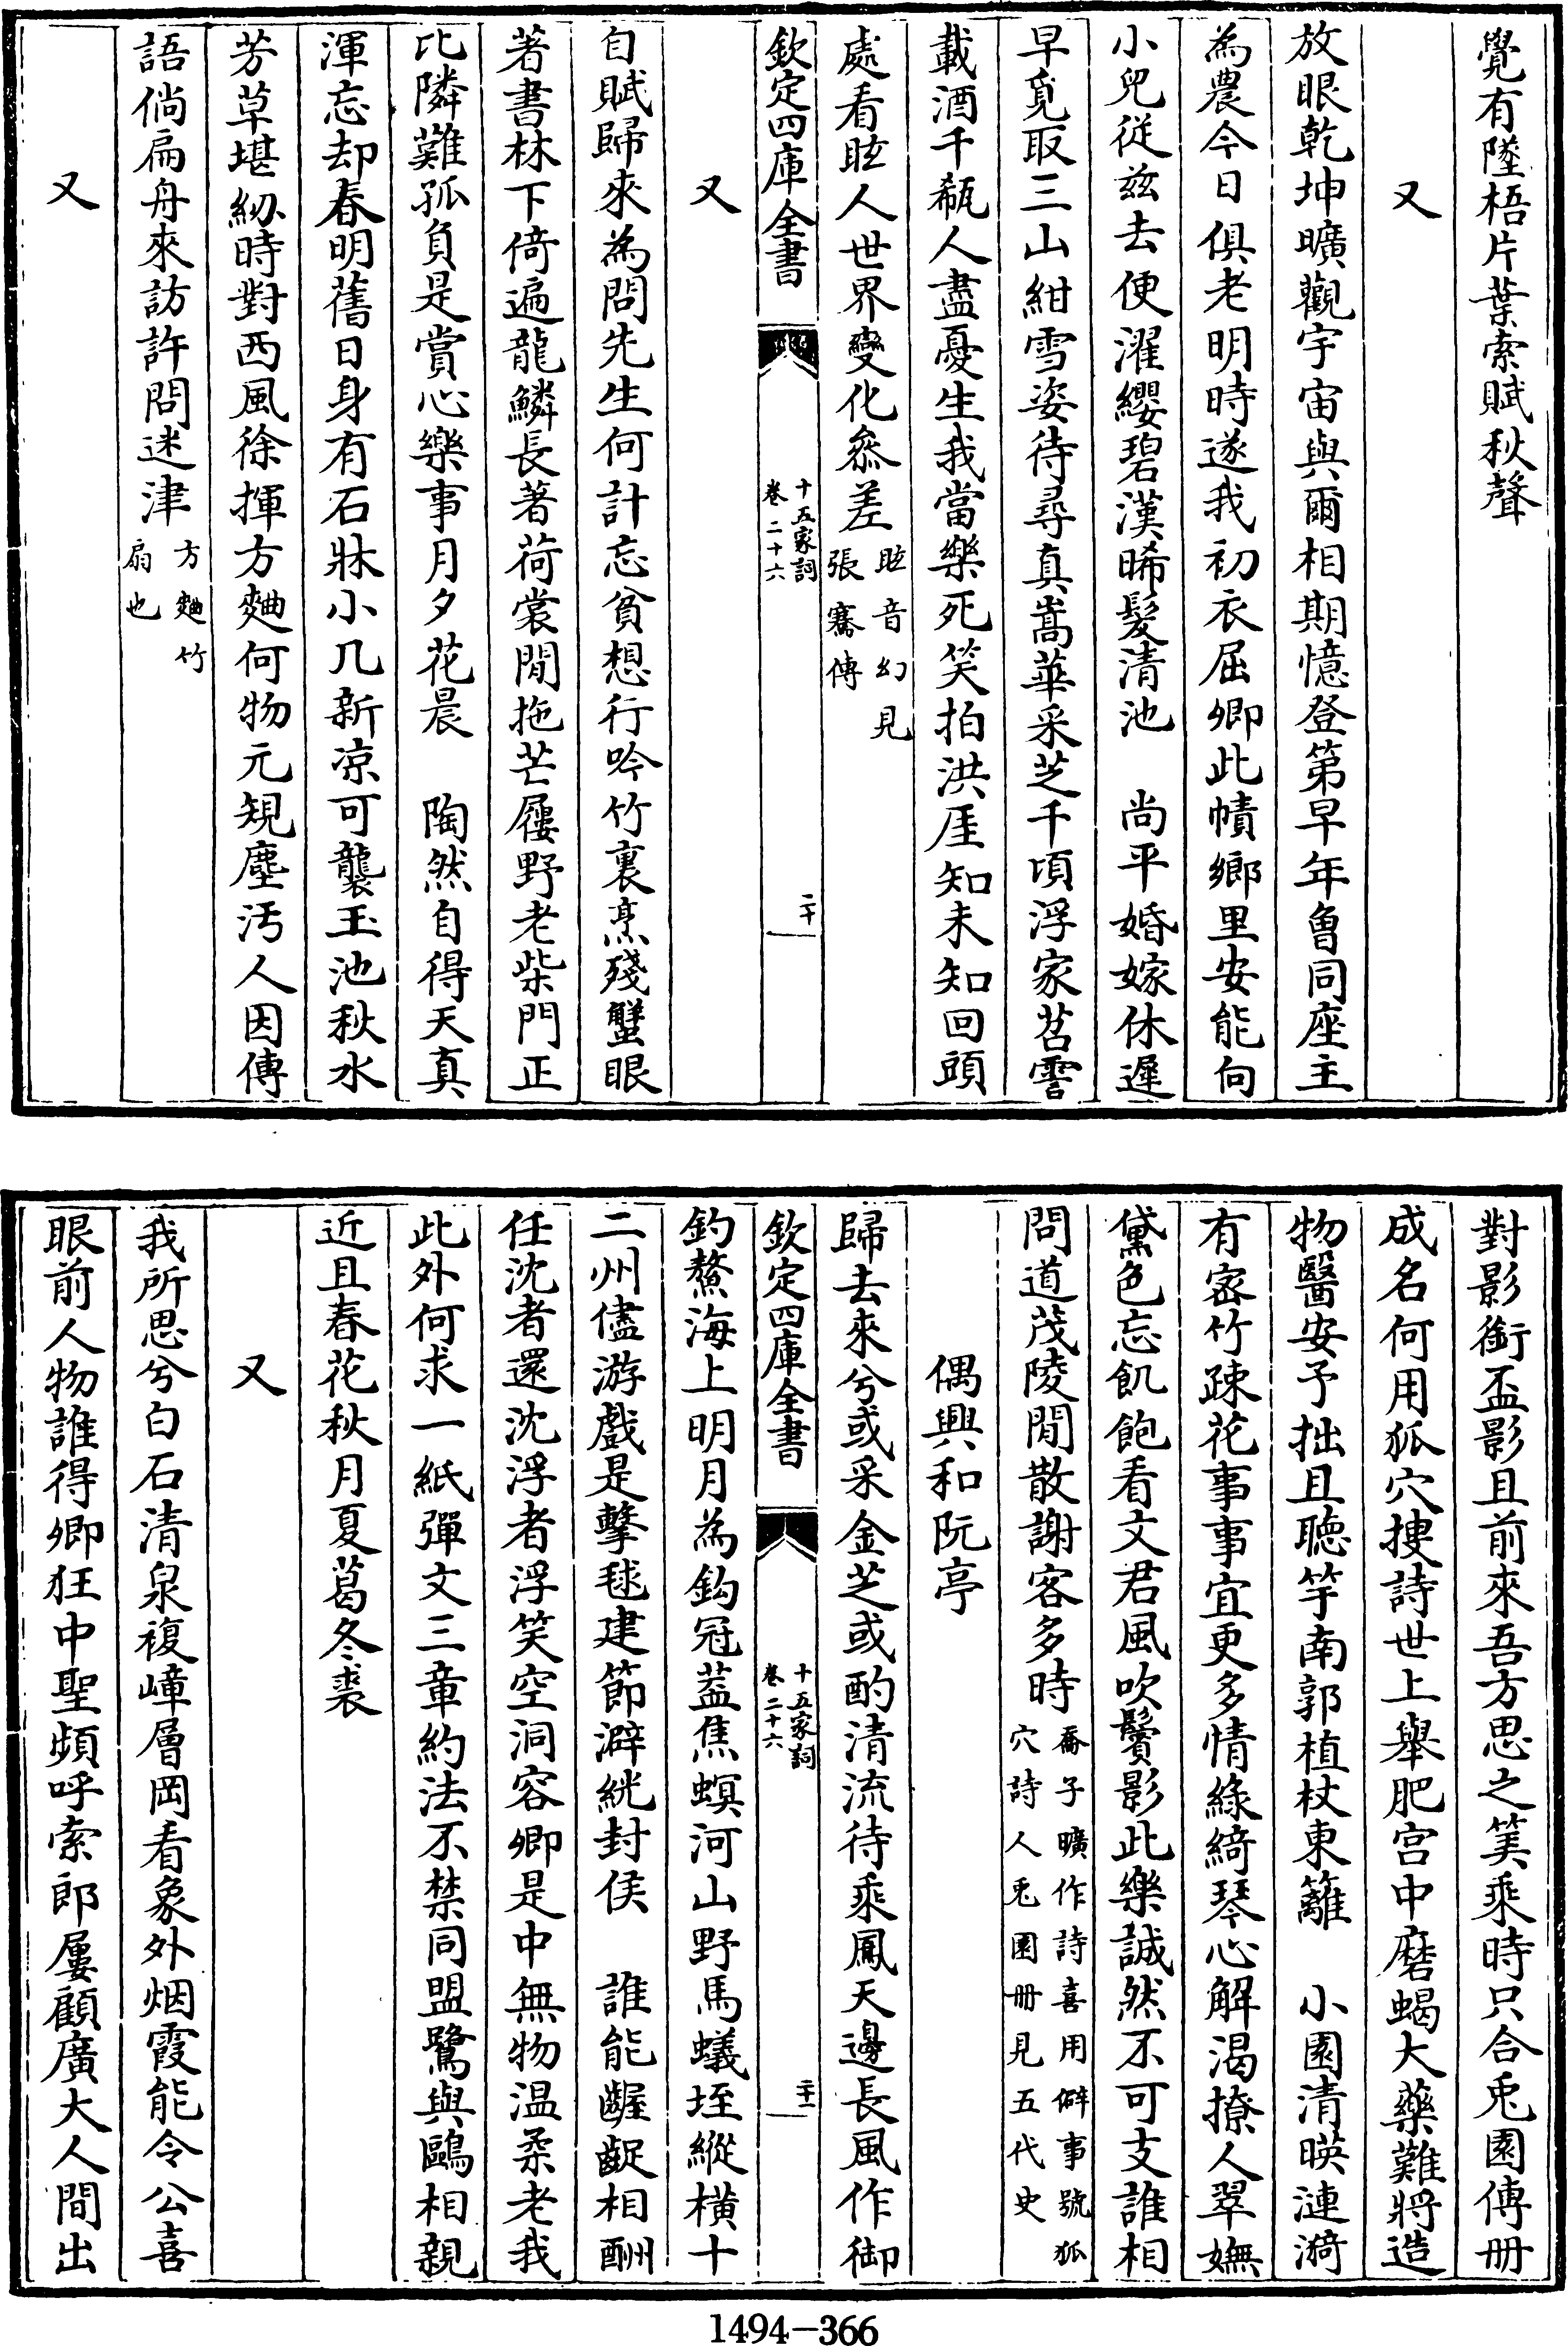 覺有墜梧片葉索賦秋聲
又
放眼乾坤曠觀宇宙與爾相期憶登第早年魯同座主
為農今日俱老明時遂我初衣屈卿此幘鄉里安能向
小兒從兹去便濯纓碧漢晞髮清池　尚平婚嫁休遲
早覓取三山紺雪姿待尋真嵩華采芝千頃浮家苕霅
載酒千瓻人盡憂生我當樂死笑拍洪厓知未知回頭
處看眩人世界變化叅差眩音幻見張騫傳
欽定四庫全書
十五家詞
卷二十六
二十
又
自賦歸來為問先生何計忘貧想行吟竹裏烹殘蟹眼
著書林下倚遍龍鱗長著荷裳閒拖芒屨野老柴門正
比隣難孤負是賞心樂事月夕花晨　陶然自得天真
渾忘却春明舊日身有石牀小几新凉可襲玉池秋水
芳草堪紉時對西風徐揮方麯何物元規塵汚人因傳
語倘扁舟來訪許問迷津方麯竹扇也
又
對影銜盃影且前來吾方思之筭乘時只合兎園傳册
成名何用狐穴搜詩世上舉肥宫中磨蝎大藥難將造
物醫安予拙且聽竽南郭植杖東籬　小園清暎漣漪
有宻竹疎花事事宜更多情綠綺琴心解渴撩人翠嫵
黛色忘飢飽看文君風吹鬢影此樂誠然不可支誰相
問道茂陵閒散謝客多時喬子曠作詩喜用僻事號狐穴詩人兎園册見五代史
偶興和阮亭
歸去來兮或采金芝或酌清流待乘鳳天邊長風作御
欽定四庫全書
十五家詞
卷二十六
二十一
釣鰲海上明月為鈎冠蓋焦螟河山野馬蟻垤縱橫十
二州儘游戲是擊毬建節澼絖封侯　誰能齷齪相酬
任沈者還沈浮者浮笑空洞容卿是中無物温柔老我
此外何求一紙彈文三章約法不禁同盟鷺與鷗相親
近且春花秋月夏葛冬裘
又
我所思兮白石清泉複嶂層岡看象外烟霞能令公喜
眼前人物誰得卿狂中聖頻呼索郎屢顧廣大人間出
1494-366